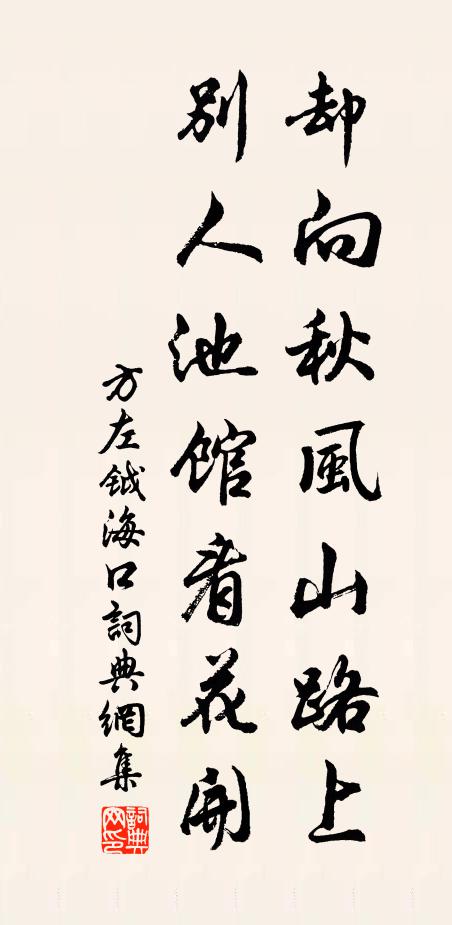 却向秋風山路上
別人池館看花開
方左鉞海口詞典網集
詞典
网印